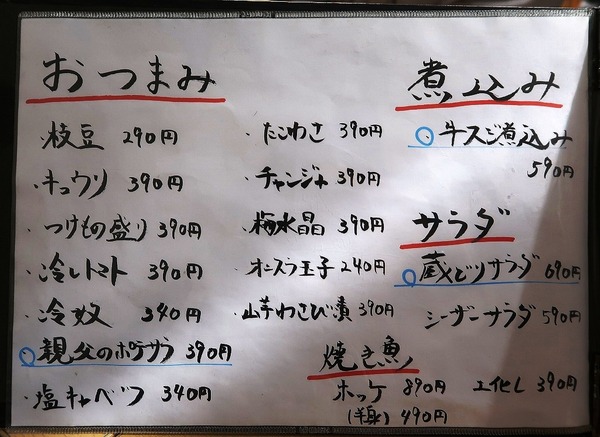 おつまみ
・枝豆 290円
・キュウリ 390円
・つけもの盛り 390円
・冷しトマト 390円
・冷奴 340円
○親父のポテサラ 390円
・塩キャベツ 340円
・たこわさ 390円
・チャンジャ 390円
・梅水晶 390円
・オニスラ玉子 240円
・山芋わさび漬 390円
煮込み
○牛スジ煮込み
590円
サラダ
○蔵どりサラダ 690円
シーザーサラダ 590円
焼き魚
ホッケ 890円
(半身) 490円
エイヒレ 390円